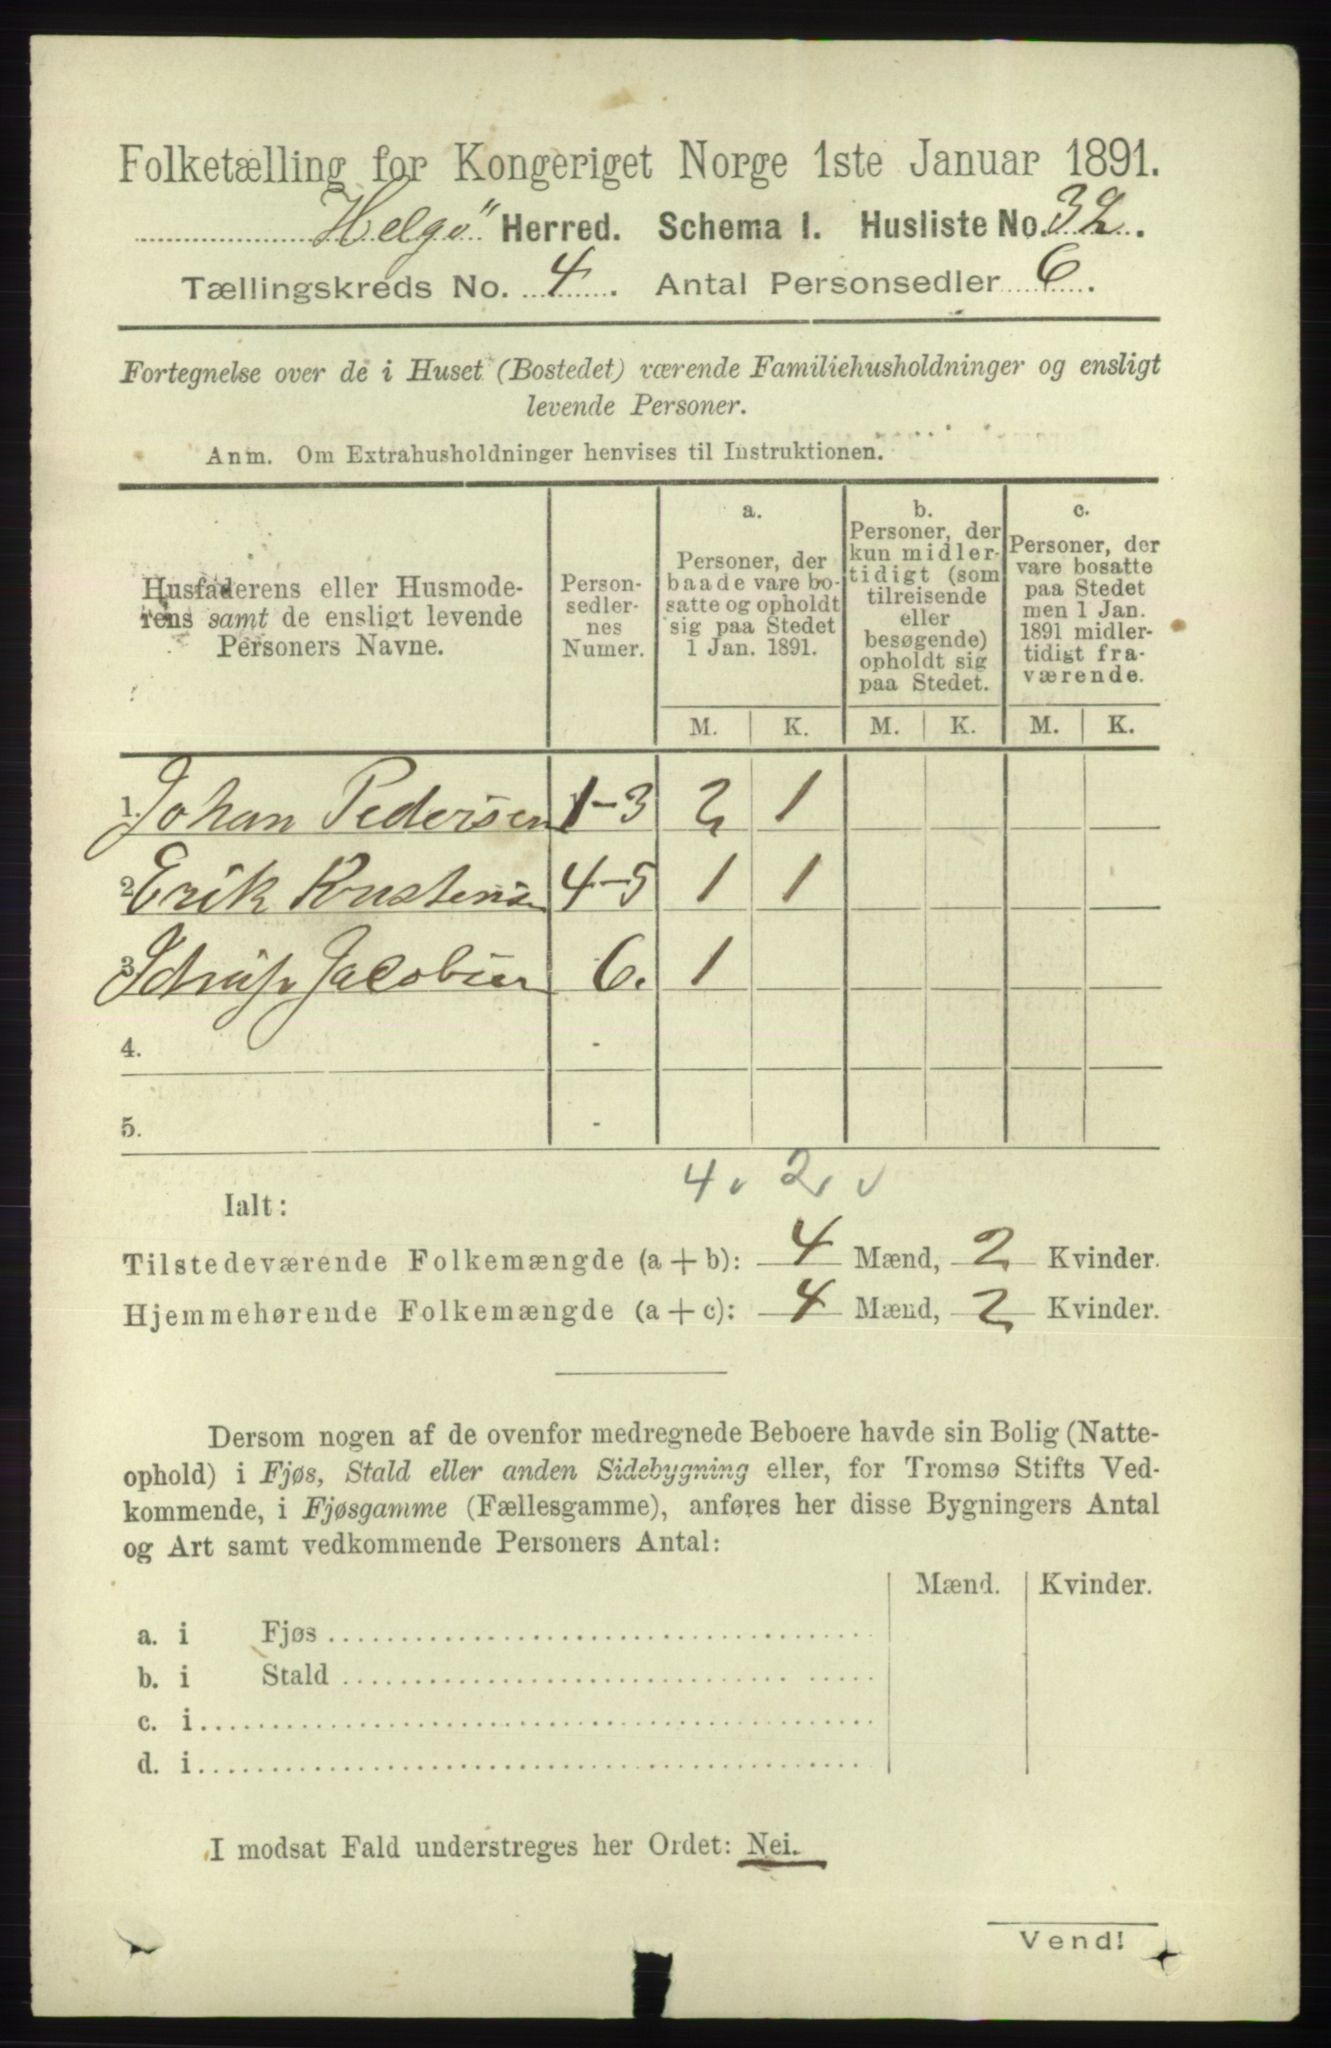 Folketælling for Kongeriget Norge 1ste Januar 1891.
Helgö Herred. Schema I. Husliste No. 32.
Tællingskreds No. 4. Antal Personsedler 6.
Fortegnelse over de i Huset (Bostedet) værende Familiehusholdninger og ensligt
levende Personer.
Anm. Om Extrahusholdninger henvises til Instruktionen.
Husfaderens eller Husmode-
rens samt de ensligt levende
Personers Navne.
Person-
sedler-
nes
Numer.
a.
Personer, der
baade vare bo-
satte og opholdt
sig paa Stedet
1 Jan. 1891.
b.
Personer, der
kun midler-
tidigt (som
tilreisende
eller
besøgende)
opholdt sig
paa Stedet.
c.
Personer, der
vare bosatte
paa Stedet
men 1 Jan.
1891 midler-
tidigt fra-
værende.
M. K. M. K. M. K.
1. Johan Pedersen 1-3 2 1
2. Erik 4-5 1 1
3. Jacobsen 6. 1
4. -
5. -
4 2
Ialt:
Tilstedeværende Folkemængde (a + b): 4 Mænd, 2 Kvinder.
Hjemmehørende Folkemængde (a + c): 4 Mænd, 2 Kvinder.
Dersom nogen af de ovenfor medregnede Beboere havde sin Bolig (Natte-
ophold) i Fjøs, Stald eller anden Sidebygning eller, for Tromsø Stifts Ved-
kommende, i Fjøsgamme (Fællesgamme), anføres her disse Bygningers Antal
og Art samt vedkommende Personers Antal:
Mænd. Kvinder.
a. i Fjøs
b. i Stald
c. i
d. i
I modsat Fald understreges her Ordet: Nei.
Vend!